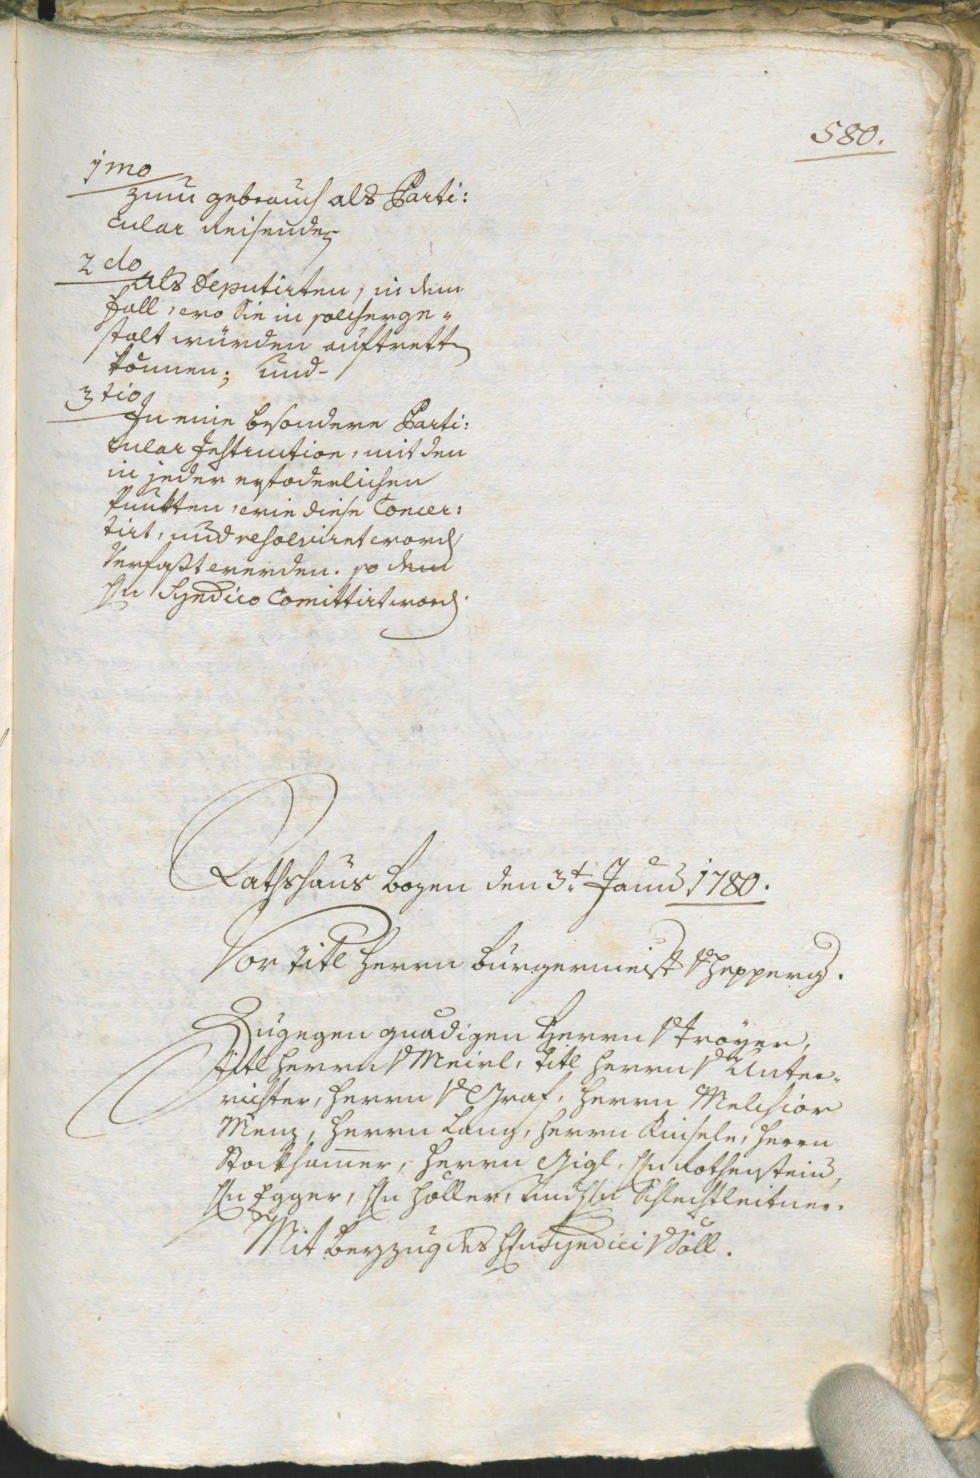 580.
1mo
zum gebrauch als Parti:
cular Reisende,
2do
Als Deputirten, in dem
fall, wo Sie in solcherge-
stalt würden auftretten
können; und-
3tio
In eine besondere Parti:
cular Instruction, mit den
in jeder erfoderlichen
Puncten, wie diese Concer:
tirt, und resolviret word
Verfaßt werden. so dem
Hn Syndico Comittirt word.
Rathshaus Bozen den 3t Jann 1780.
Vor Titl Herrn Bürgermeist v Hepperg.
Zugegen gnädigen Herrn v Troyer,
Titl Herrn v Meirl, Titl Herrn v Unter-
richter, Herrn v Graf, Herrn Melchior
Menz, Herrn Lang, Herrn Kinsele, Herrn
Stockhamer, Herrn Gigl, Hn Rothenstein,
Hn Egger, Hn Höller, und Hn Schlechtleitner.
Mit Beyzug des Hn Syndici v Söll.